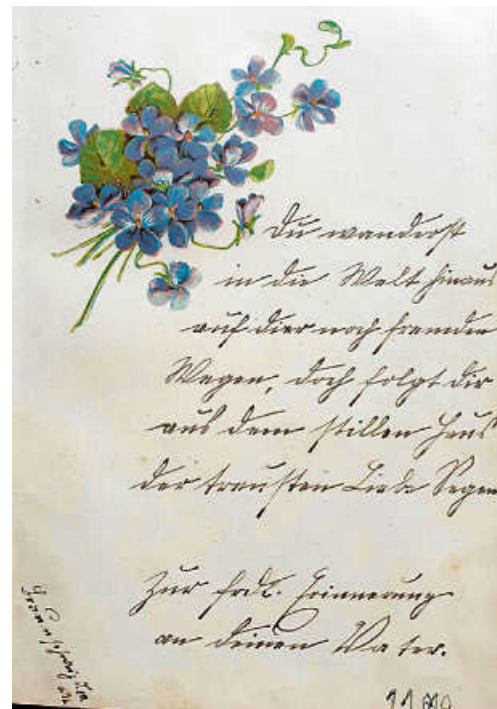 Du wanderst
in die Welt hinaus
auf dier noch fremden
Wegen, doch folgt dir
aus dem stillen Haus
der treusten Liebe Segen
Zur frdl. Erinnerung
an deinen Vater.